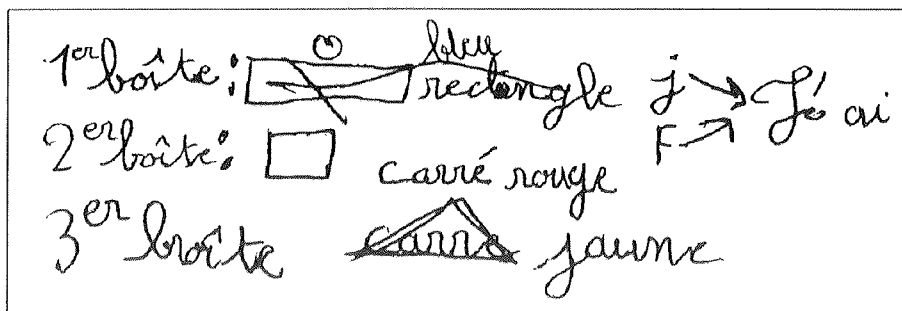 1er boîte : bleu rectangle j F Jé ai
2er boîte : carré rouge
3er boîte carré jaune